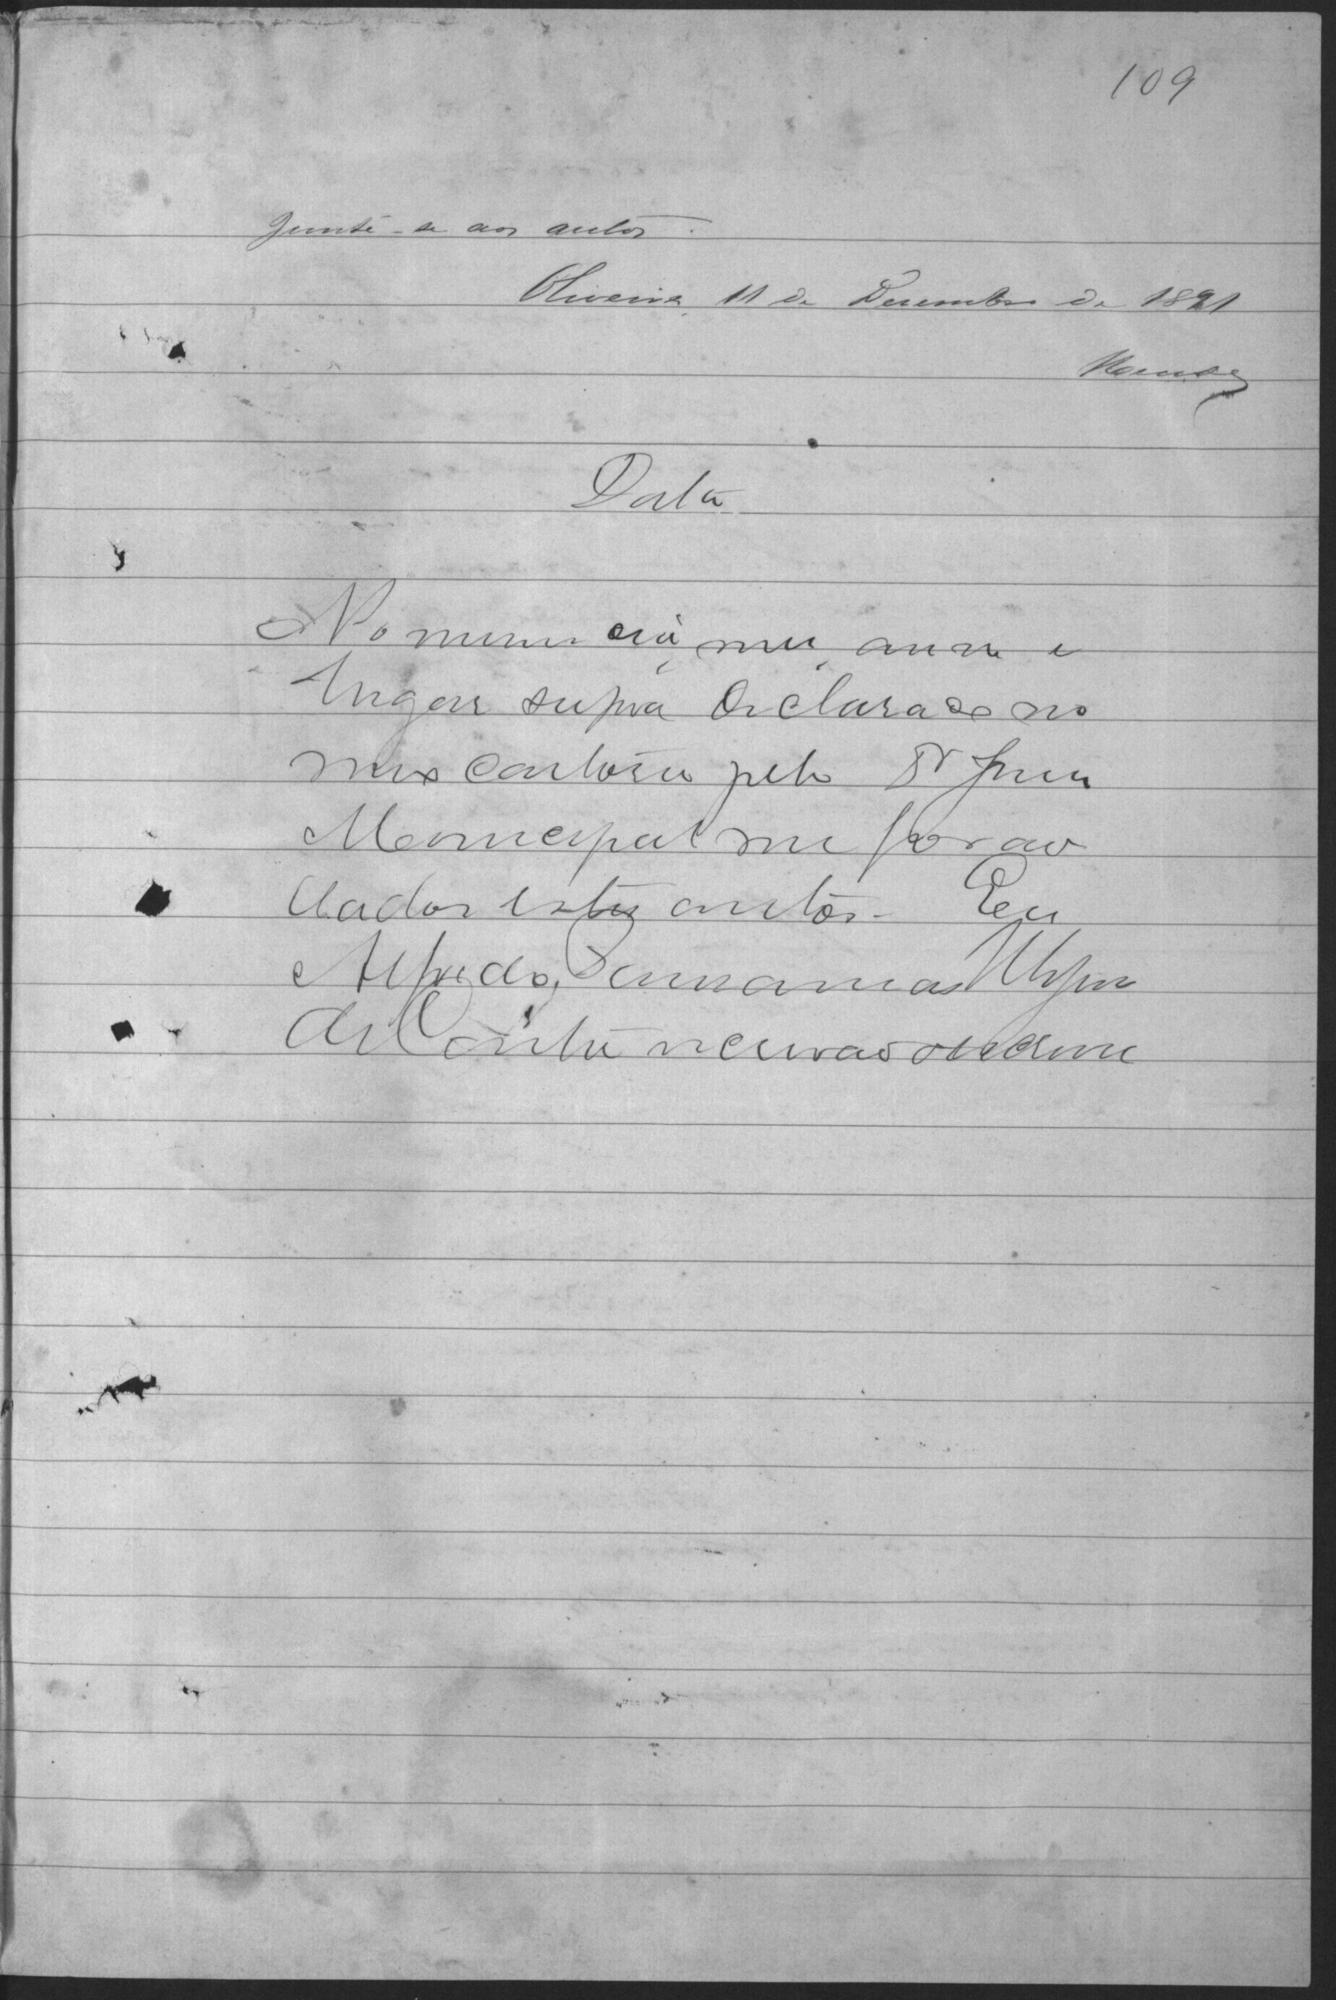 109
Junte-se aos autos.
Oliveira, 11 de Dezembro de 1891
Data
No mesmo dia, mez, anno e
lugar supra declarado no
meu cartorio pelo Dr Juiz
Municipal me forão
dados estes autos. Eu
Alfredo
de escrivão o escrevi